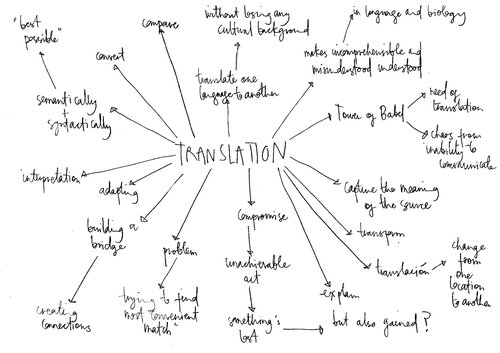 "best
possible"
convert
compare
without losing any
cultural background
translate one
language to another
in language and biology
makes incomprehensible and
misunderstood understood
semantically
+
syntactically
Tower of Babel
need of
translation
chaos from
inability to
communicate
TRANSLATION
interpretation
adapting
capture the meaning
of the source
building a
bridge
creating
connections
problem
"trying to find
most convenient
match"
compromise
unachievable
act
something's
lost
but also gained?
explain
transform
translación
change
from
one
location
to another